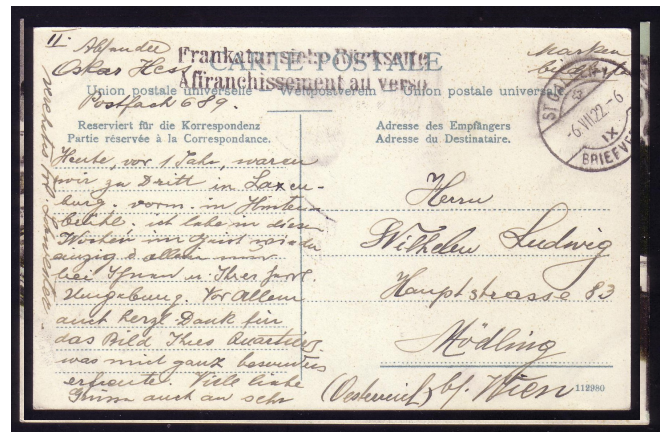 II.
Oskar Hess
Postfach 689.
Marken
Frankatur siehe Rückseite
Affranchissement au verso
CARTE POSTALE
Union postale universelle Weltpostverein Union postale universelle
Reserviert für die Korrespondenz
Partie réservée à la Correspondance.
Adresse des Empfängers
Adresse du Destinataire.
-6.VII.22.-6
IX
BRIEFVE
Heute, vor 1 Jahr, waren
wir zu Dritt in Laxen-
burg. vorm. in Hinter-
brühl. ich lebe in diesen
Wochen im Geist
bei Ihnen u. Ihrer
Umgebung. Vor Allem
auch herzl. Dank für
das Bild Ihres Quartiers,
was mich ganz besonders
erfreute. Viele liebe
Grüsse auch an sehr
Herrn
Wilhelm Ludwig
Hauptstrasse 83
Mödling
(Oesterreich) b/. Wien
112980